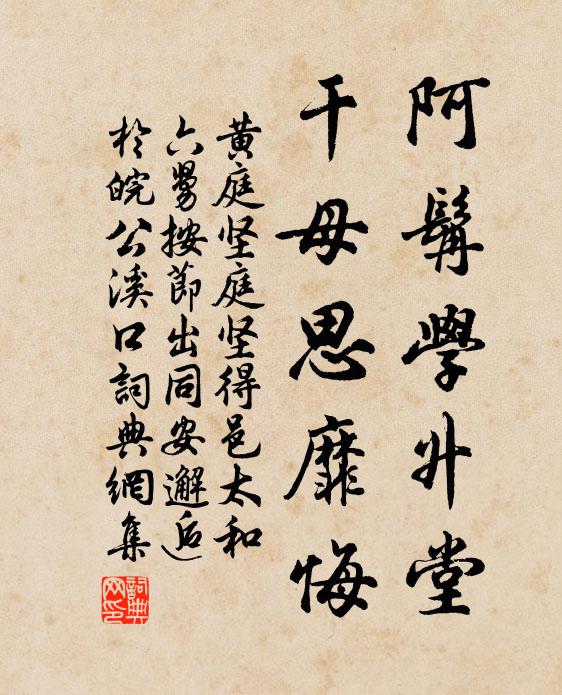 阿髯學升堂
干母思靡悔
黄庭坚庭坚得邑太和
六舅按節出同安邂逅
於皖公溪口詞典網集
詞典网印